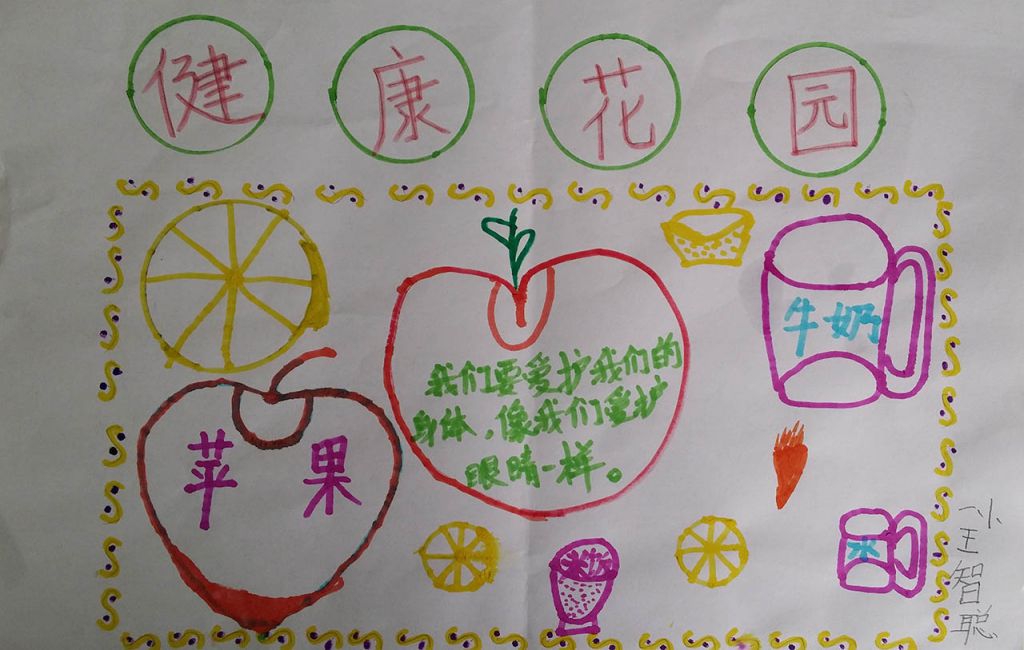 健康花园
牛奶
我们要爱护我们的
身体，像我们爱护
眼睛一样。
苹果
米饭
水
一小
王智聪